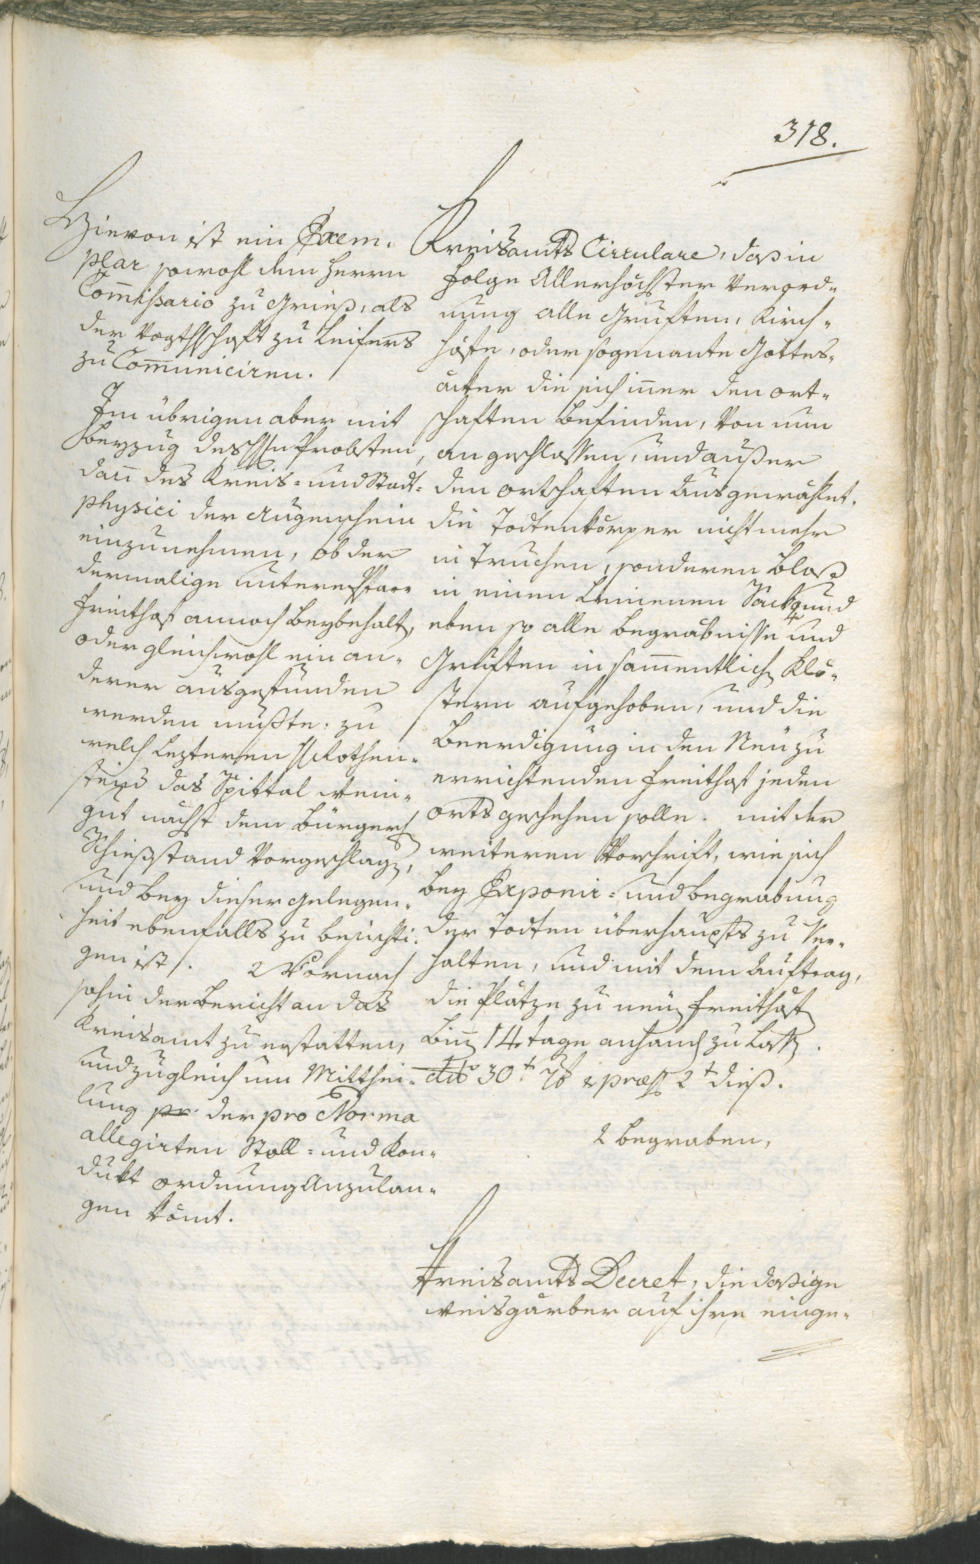 318.
Hievon ist ein Exem-
plar sowohl dem Herrn
Com̄ißario zu Grieß, als
der Vogthschaft zu Leifers
zu Com̄uniciren.
Im übrigen aber mit
Beyzug des Hn Probsten,
dan̄ des Kreis- und Stadt-
physici der Augenschein
einzunehmen, ob der
dermalige untere Pfarr
Freithof annoch beybehalt,
oder gleichwohl ein an-
derer ausgefunden
werden müßte. zu
welch Lezteren H Rothen-
steins das Spittal Wein-
gut nächst dem Bürgerl
Schießstand Vorgeschlagen,
und bey dieser Gelegen-
heit ebenfalls zu besichti-
gen ist. 2 Wornach
sohin der Bericht an das
Kreisamt zu erstatten,
und zugleich um Mitthei-
lung der pro Norma
allegirten Stoll- und Kon-
dukt ordnung Anzulan-
gen kömt.
Kreisamts Circulare, daß in
Folge Allerhöchster Verord-
nung alle Gruften, Kirch-
höfe, oder sogenante Gottes-
äcker die sich in̄er den ort-
schaften befinden, Von nun
an geschlossen, und außer
den ortschaften Ausgewählet.
die Todtenkörper nicht mehr
in Truchen, sonderen bloß
in einen Leinenen Sack und
eben so alle begräbnisse und
Gruften in sam̄entlich Klö-
stern aufgehoben, und die
Beerdigung in den Neü zu
errichtenden Freithof jeden
orts geschehen solle. mit der
weiteren Vorschrift, wie sich
bey Exponir- und begrabung
der Todten überhaupts zu Ver-
halten, und mit dem Auftrag,
die Plätze zu neüen Freithöf
bin̄ 14 tage anhand zu laß.
dto 30t 7b & præs 2t dieß.
2 begraben,
Kreisamts Decret, die daßige
Weisgärber auf ihre einge-